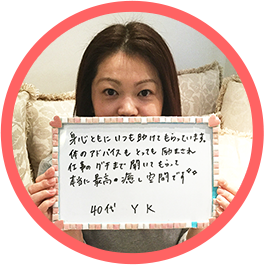 身心ともにいつも助けてもらっています。
体のアドバイスもとっても励まされ
仕事のグチまで聞いてもらって
本当に最高の癒し空間です
40代 Y K